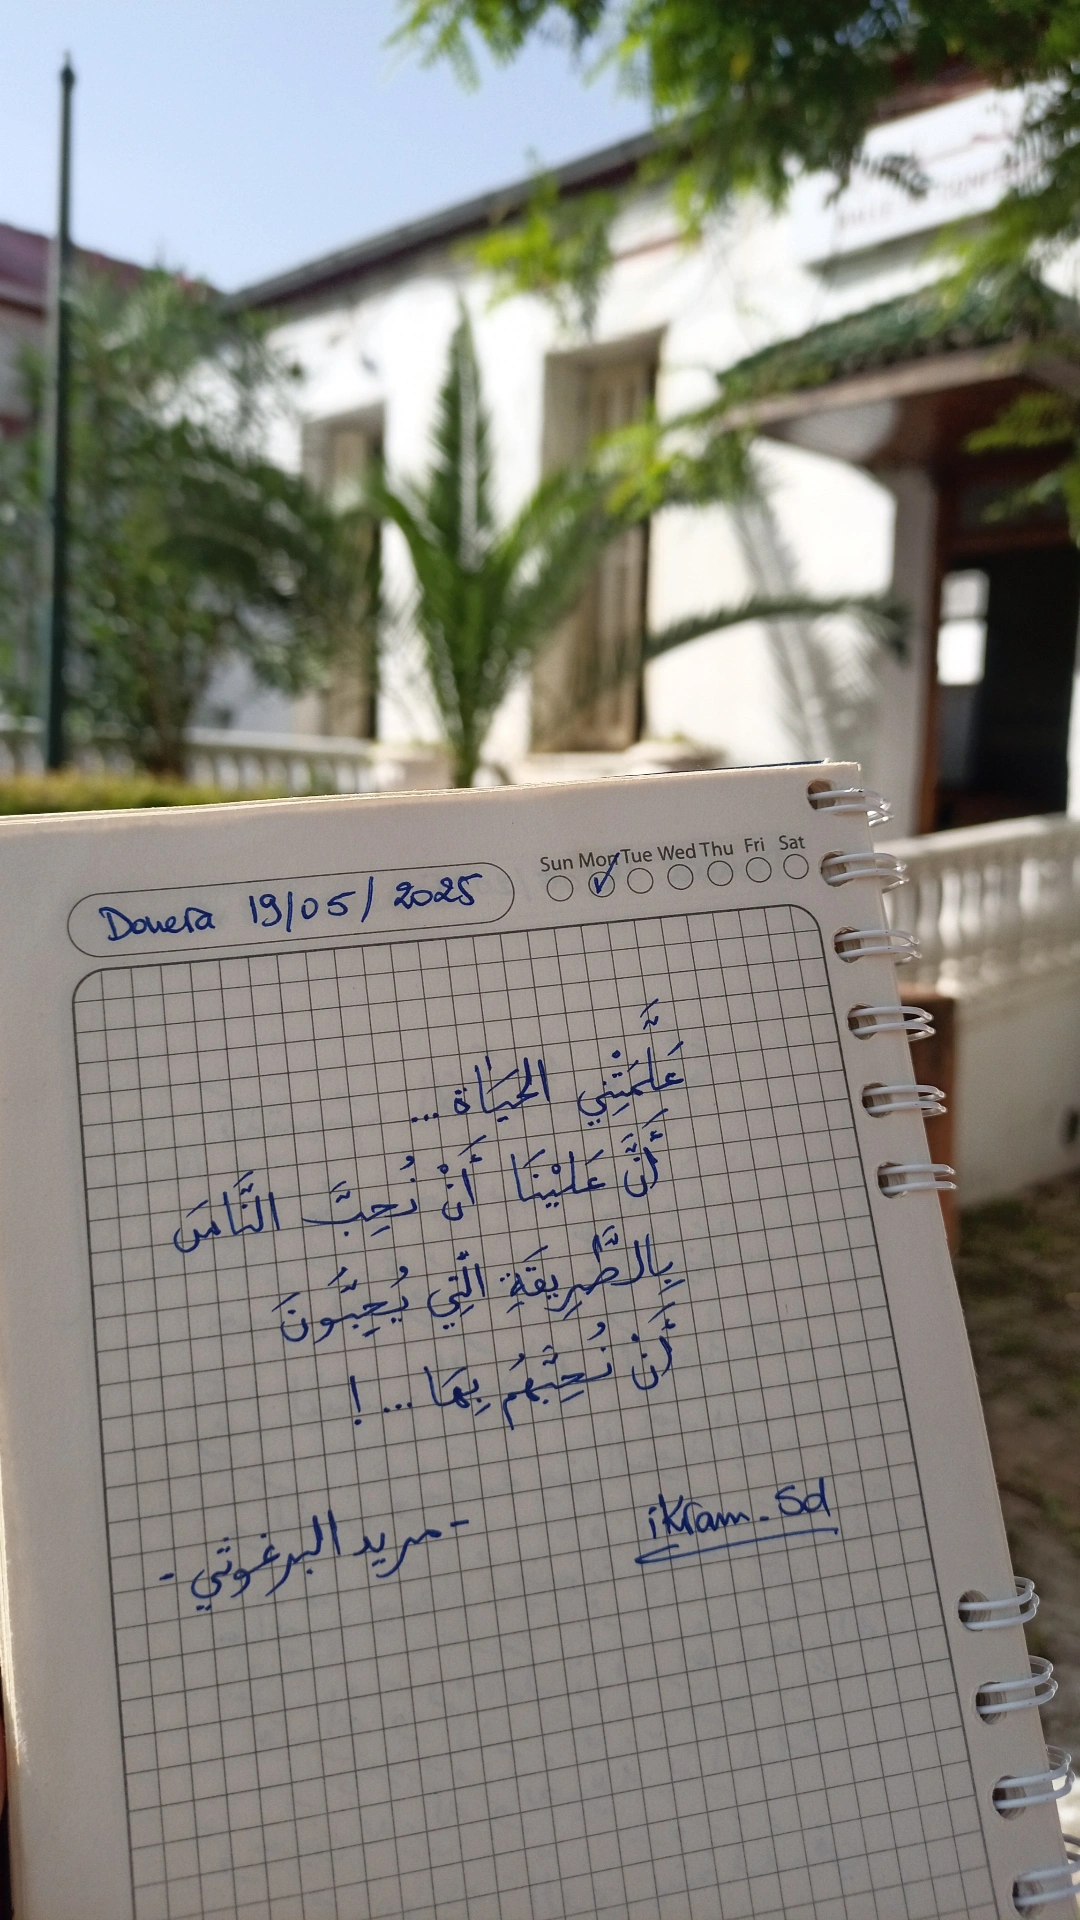 Sun Mon Tue Wed Thu Fri Sat
Douera 19/05/2025
عَلَّمَتْنِي الحَيَاة...
أَنَّ عَلَيْنَا أَنْ نُحِبَّ النَّاسَ
بِالطَّرِيقَةِ الَّتِي يُحِبُّونَ
أَنْ نُحِبَّهُم بِهَا...!
ikram_Sd
-مريد البرغوثي-